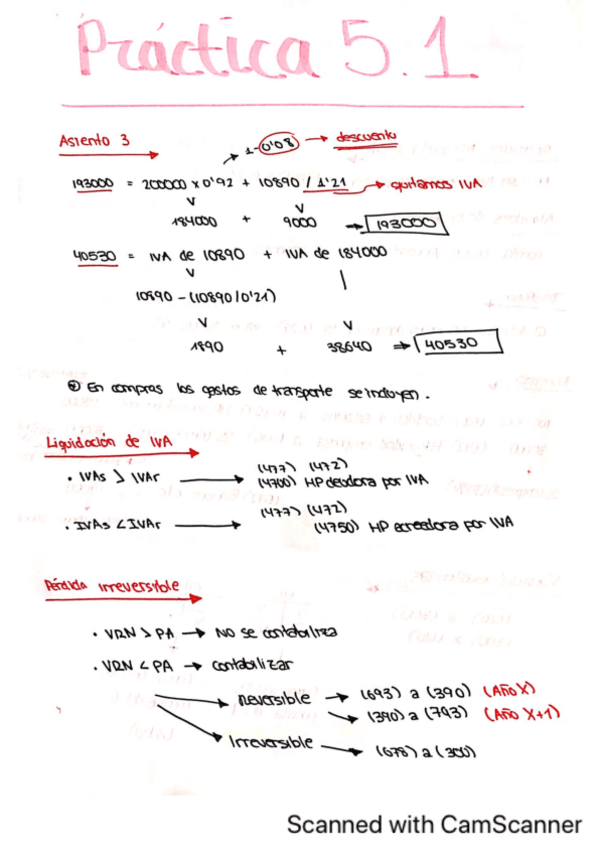 Práctica 5.1
Asiento 3
1-0'08 → descuento
193000 = 200000 x 0'92 + 10890 / 1'21 → quitamos IVA
184000 + 9000 → 193000
40530 = IVA de 10890 + IVA de 184000
10890 - (10890/0'21)
1890 + 38640 ⇒ 40530
En compras los gastos de transporte se incluyen.
Liquidación de IVA
• IVAs > IVAr → (477) (472)
(4700) HP deudora por IVA
• IVAs < IVAr → (477) (472)
(4750) HP acreedora por IVA
Pérdida irreversible
• VRN > PA → NO se contabiliza
• VRN < PA → contabilizar
Reversible → (693) a (390) (Año X)
→ (390) a (793) (Año X+1)
Irreversible → (678) a (300)
Scanned with CamScanner